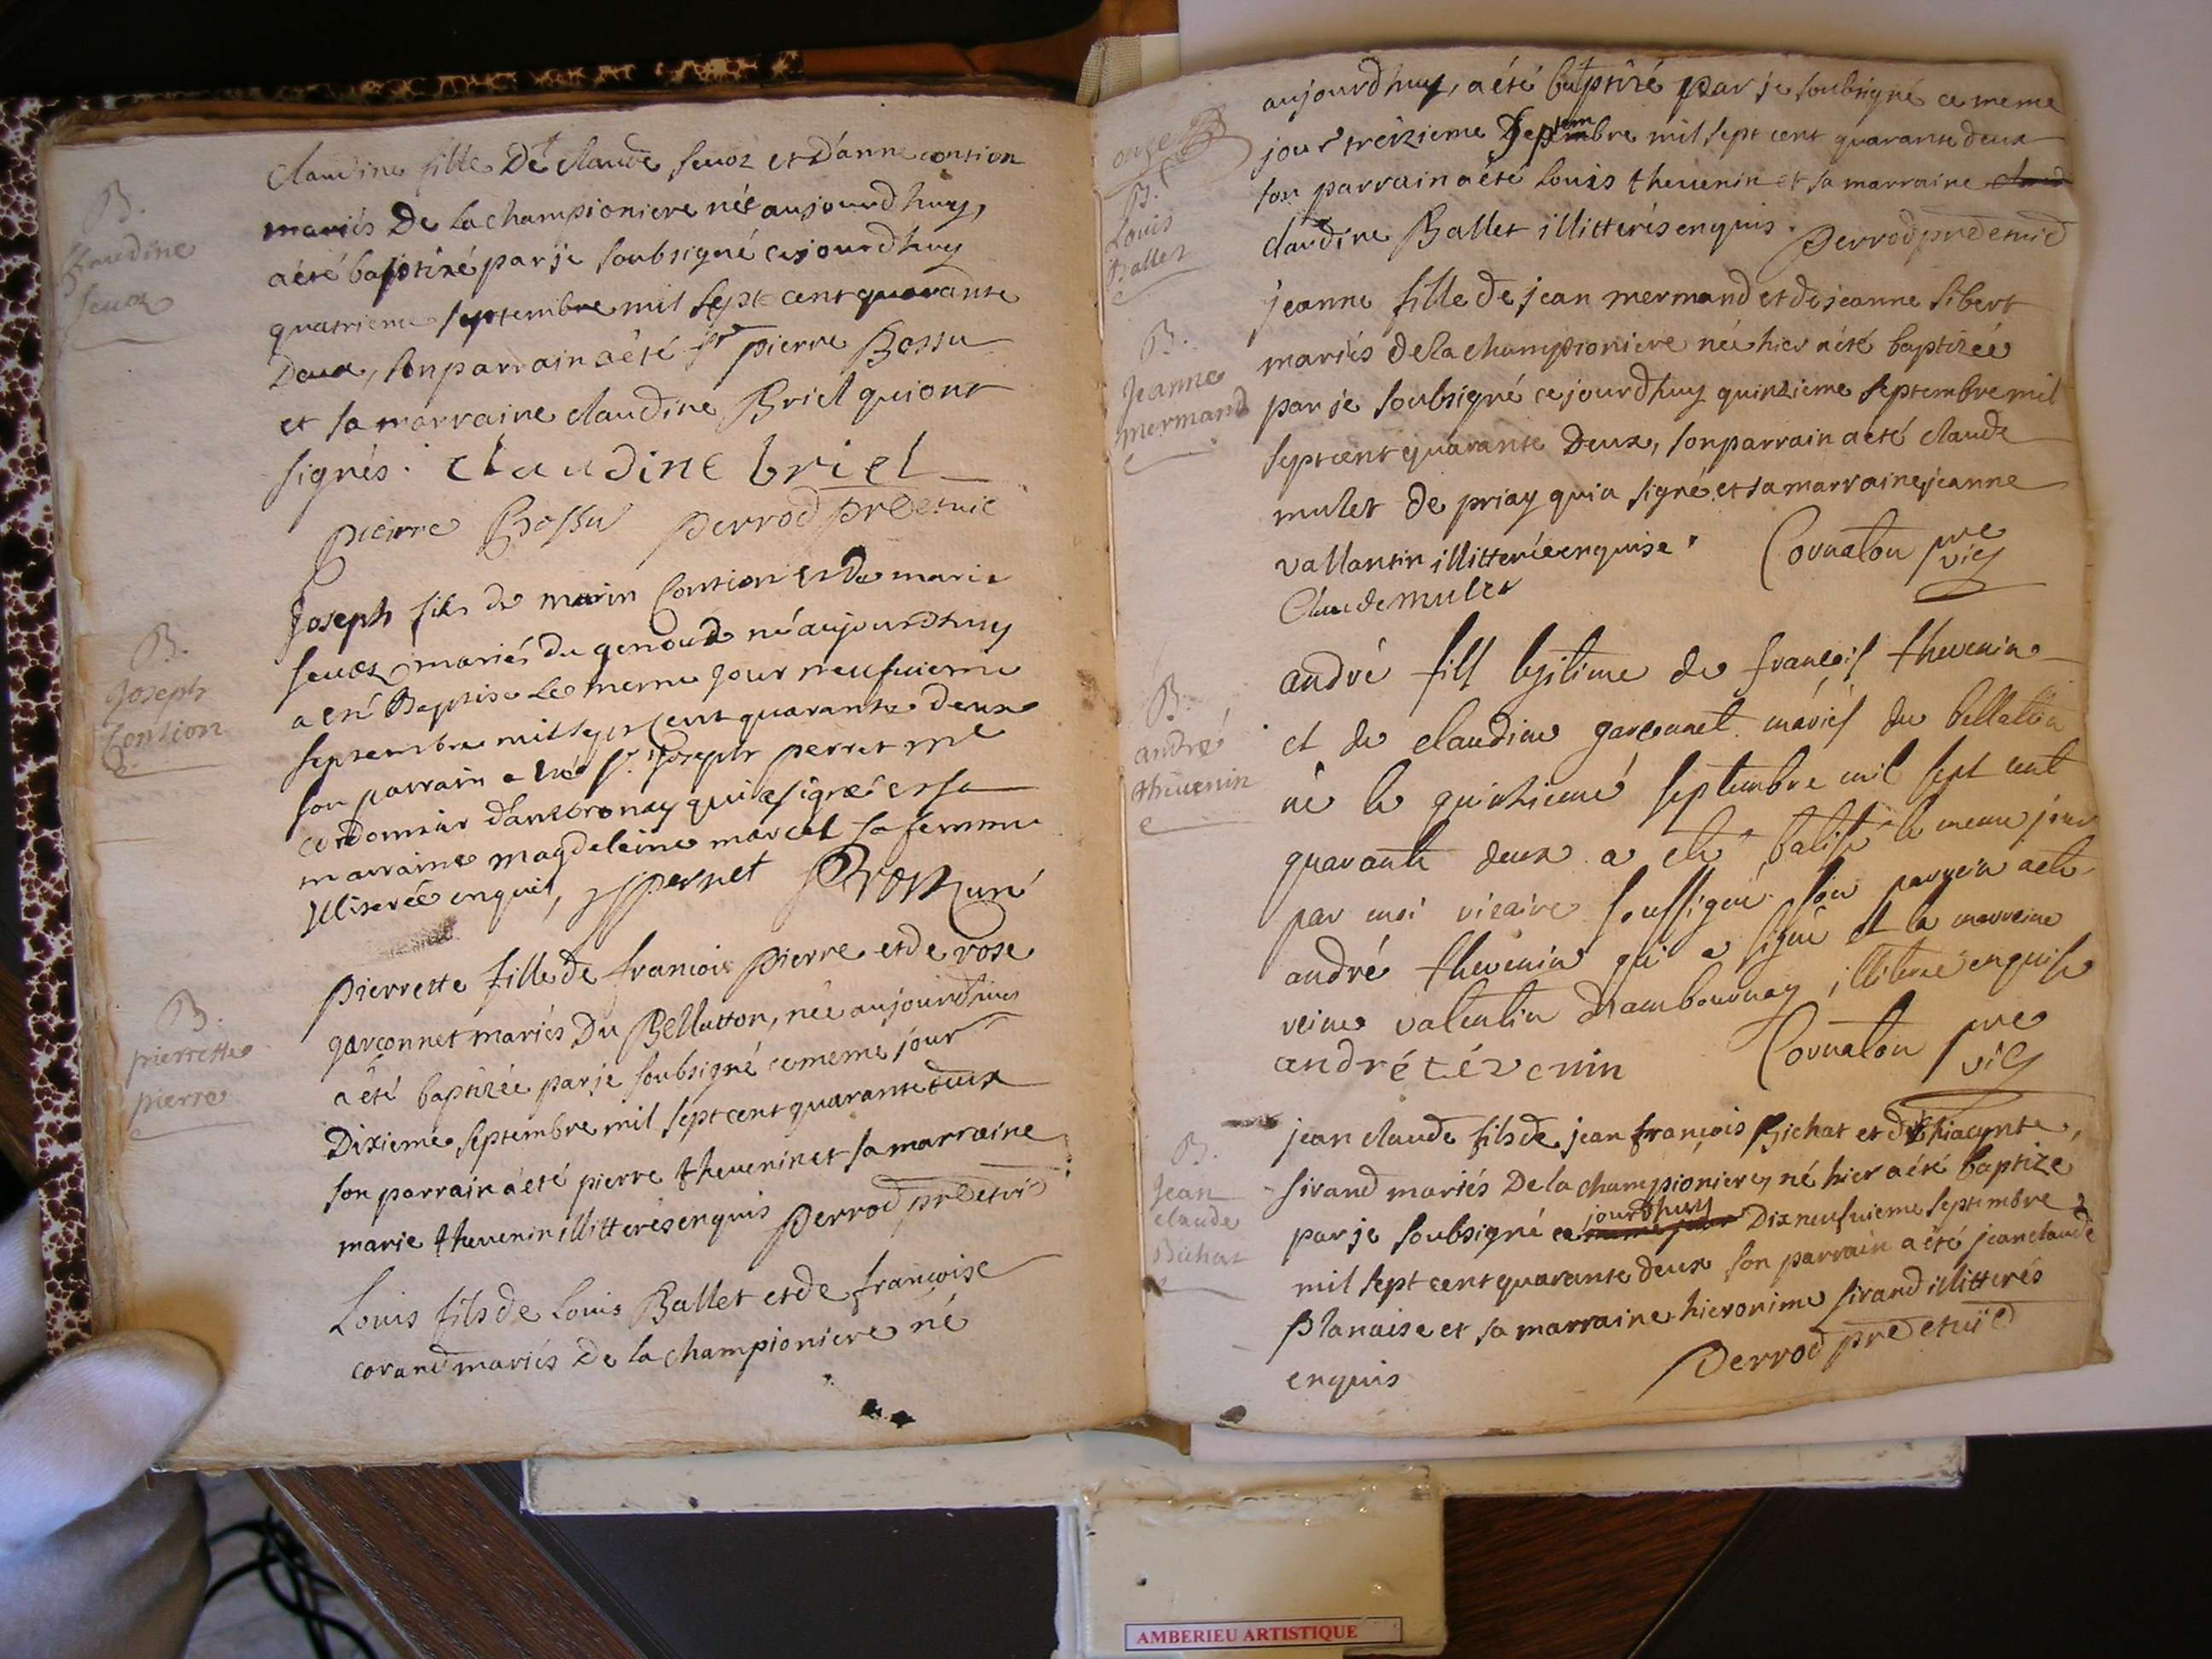 B.
Claudine
Seuoz
Claudine fille De claude Seuoz et D'anne contion
mariés De la championiere née aujourdhuy,
a été baptizé par je soubsigné cejourdhuy
quatrieme septembre mil sept cent quarante
Deux, son parrain a été sr pierre Bossu
et sa marraine claudine Briel qui ont
signés. claudine briel
pierre Bossu perrod pre et vic
B.
Joseph
Contion
Joseph fils de marin Contion et de marie
seuoz mariés du genoud né aujourdhuy
a esté Baptisé le meme jour neufuieme
septembre mil sept cent quarante deux
son parrain a été sr. Joseph perret me
cordonnier d'ambronay qui a signé et sa
marraine magdeleine marcel sa femme
illiterée enquis, perret
B.
pierrette
pierre
pierrette fille de francois pierre et de rose
garconnet mariés Du Bellatton, née aujourdhuy
a été baptizée par je soubsigné ce meme jour
Dixieme septembre mil sept cent quarante deux
son parrain a été pierre theuenin et sa marraine
marie theuenin illitterés enquis perrod pre et vic
Louis fils de Louis Ballet et de francoise
corand mariés De la championiere né
onze
B.
Louis
Ballet
aujourdhuy, a été baptizé par je soubsigné ce meme
jour treizieme Septembre mil sept cent quarante deux
son parrain a été Louis theuenin et sa marraine claud
claudine Ballet illitterés enquis. perrod pre et vic
B.
Jeanne
mermand
jeanne fille de jean mermand et de jeanne sibert
mariés de la championiere née hier a été baptizée
par je soubsigné cejourdhuy quinzieme septembre mil
sept cent quarante Deux, son parrain a été claude
mulet de priay qui a signé et sa marraine jeanne
vallantin illitterée enquise. Cornaton pre
vic
Claude mulet
B.
andré
theuenin
andré fils legitime de francois thevenin
et de claudine garconnet mariés du bellaton
né le quinzieme septembre mil sept cent
quarante deux a eté batisé le meme jour
par moi vicaire soussigné son parrein a eté
andré thevenin qui a signé et la marreine
reine valentin d'ambournay illiterée enquise
andré tévenin Cornaton pre
vic
B.
Jean
claude
Bichat
jean claude fils de jean françois Bichat et d'hiacynte
sirand mariés De la championiere, né hier a été baptizé
jourdhuy
par je soubsigné ce meme jour Dixneufuieme septembre
mil sept cent quarante deux son parrain a été jean claude
planaise et sa marraine hieronime sirand illitterés
enquis perrod pre et vic
AMBERIEU ARTISTIQUE